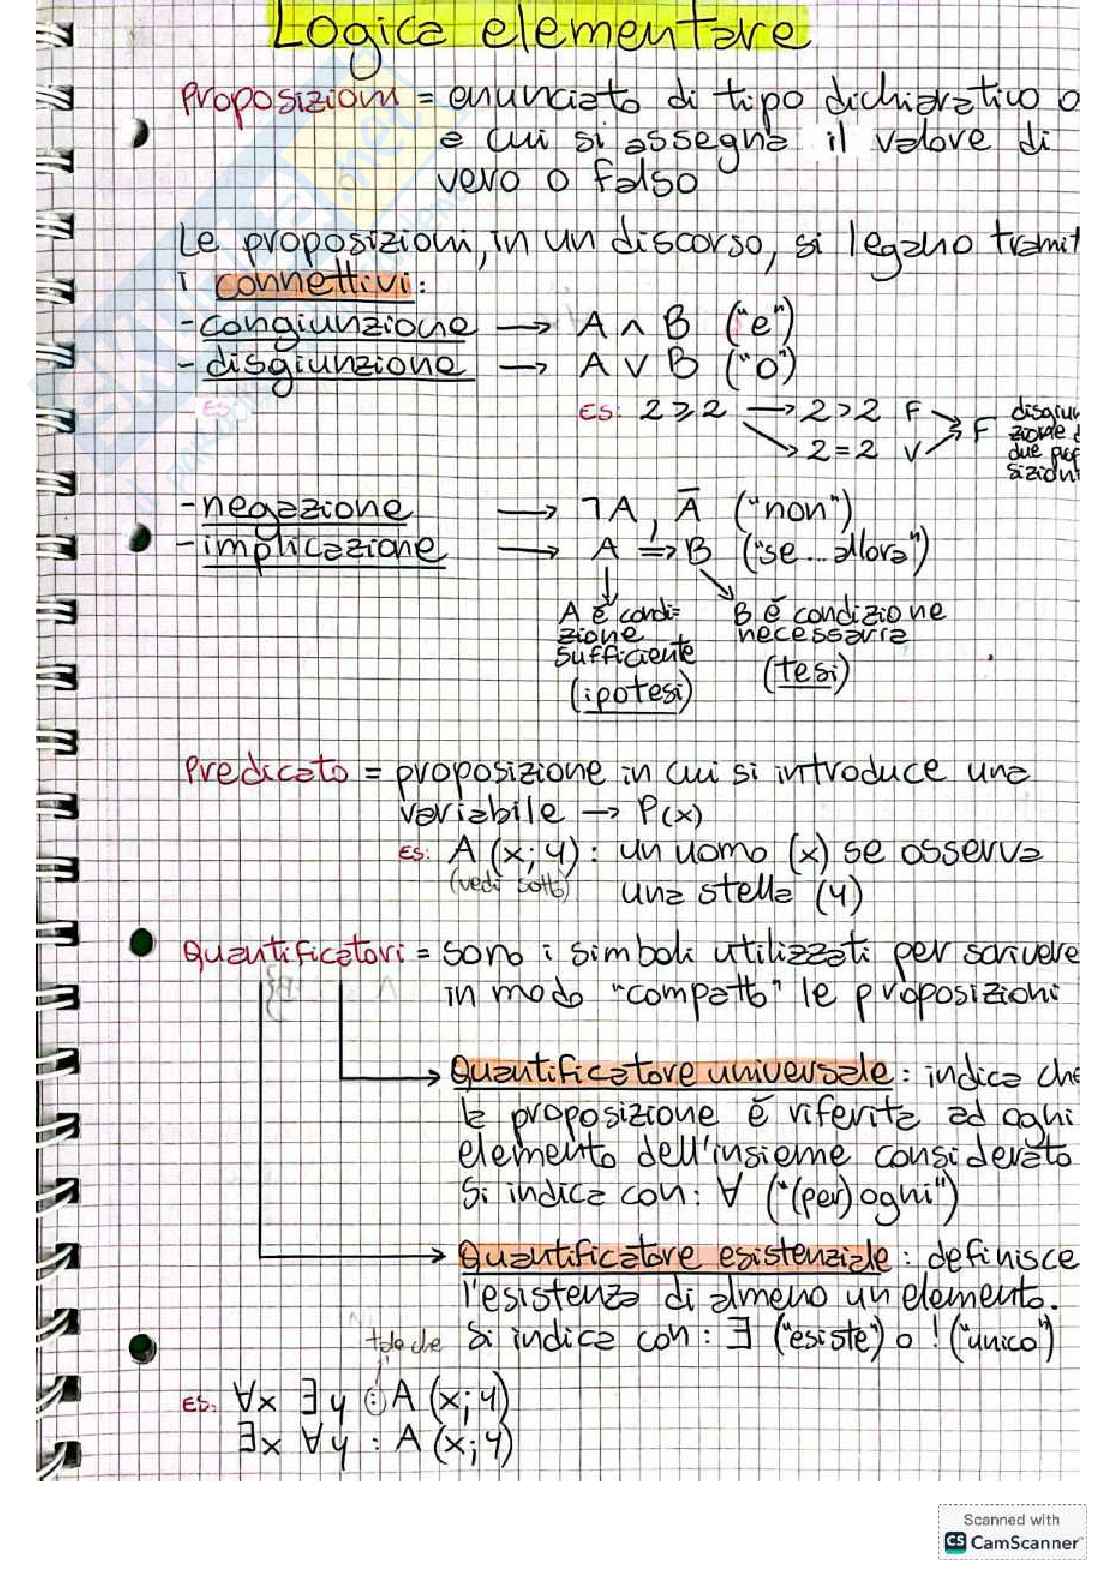 Logica elementare
Proposizioni = enunciato di tipo dichiarativo o
a cui si assegna il valore di
vero o falso
Le proposizioni, in un discorso, si legano tramit
i connettivi:
- congiunzione → A ∧ B ("e")
- disgiunzione → A ∨ B ("o")
ES: 2 ⩾ 2 → 2 > 2 F
→ 2 = 2 V
F
disgiun
zione d
due prop
sizioni
- negazione → ¬A, Ā ("non")
- implicazione → A ⇒ B ("se... allora")
A è condi-
zione
sufficiente
(ipotesi)
B è condizione
necessaria
(tesi)
Predicato = proposizione in cui si introduce una
variabile → P(x)
ES: A (x; y) : un uomo (x) se osserva
(vedi sotto) una stella (y)
Quantificatori = sono i simboli utilizzati per scrivere
in modo "compatto" le proposizioni
→ Quantificatore universale : indica che
la proposizione è riferita ad ogni
elemento dell'insieme considerato
Si indica con: ∀ ("(per) ogni")
→ Quantificatore esistenziale : definisce
l'esistenza di almeno un elemento.
Si indica con : ∃ ("esiste") o ! ("unico")
tale che
ES. ∀x ∃y : A (x; y)
∃x ∀y : A (x; y)
Scanned with
CS CamScanner